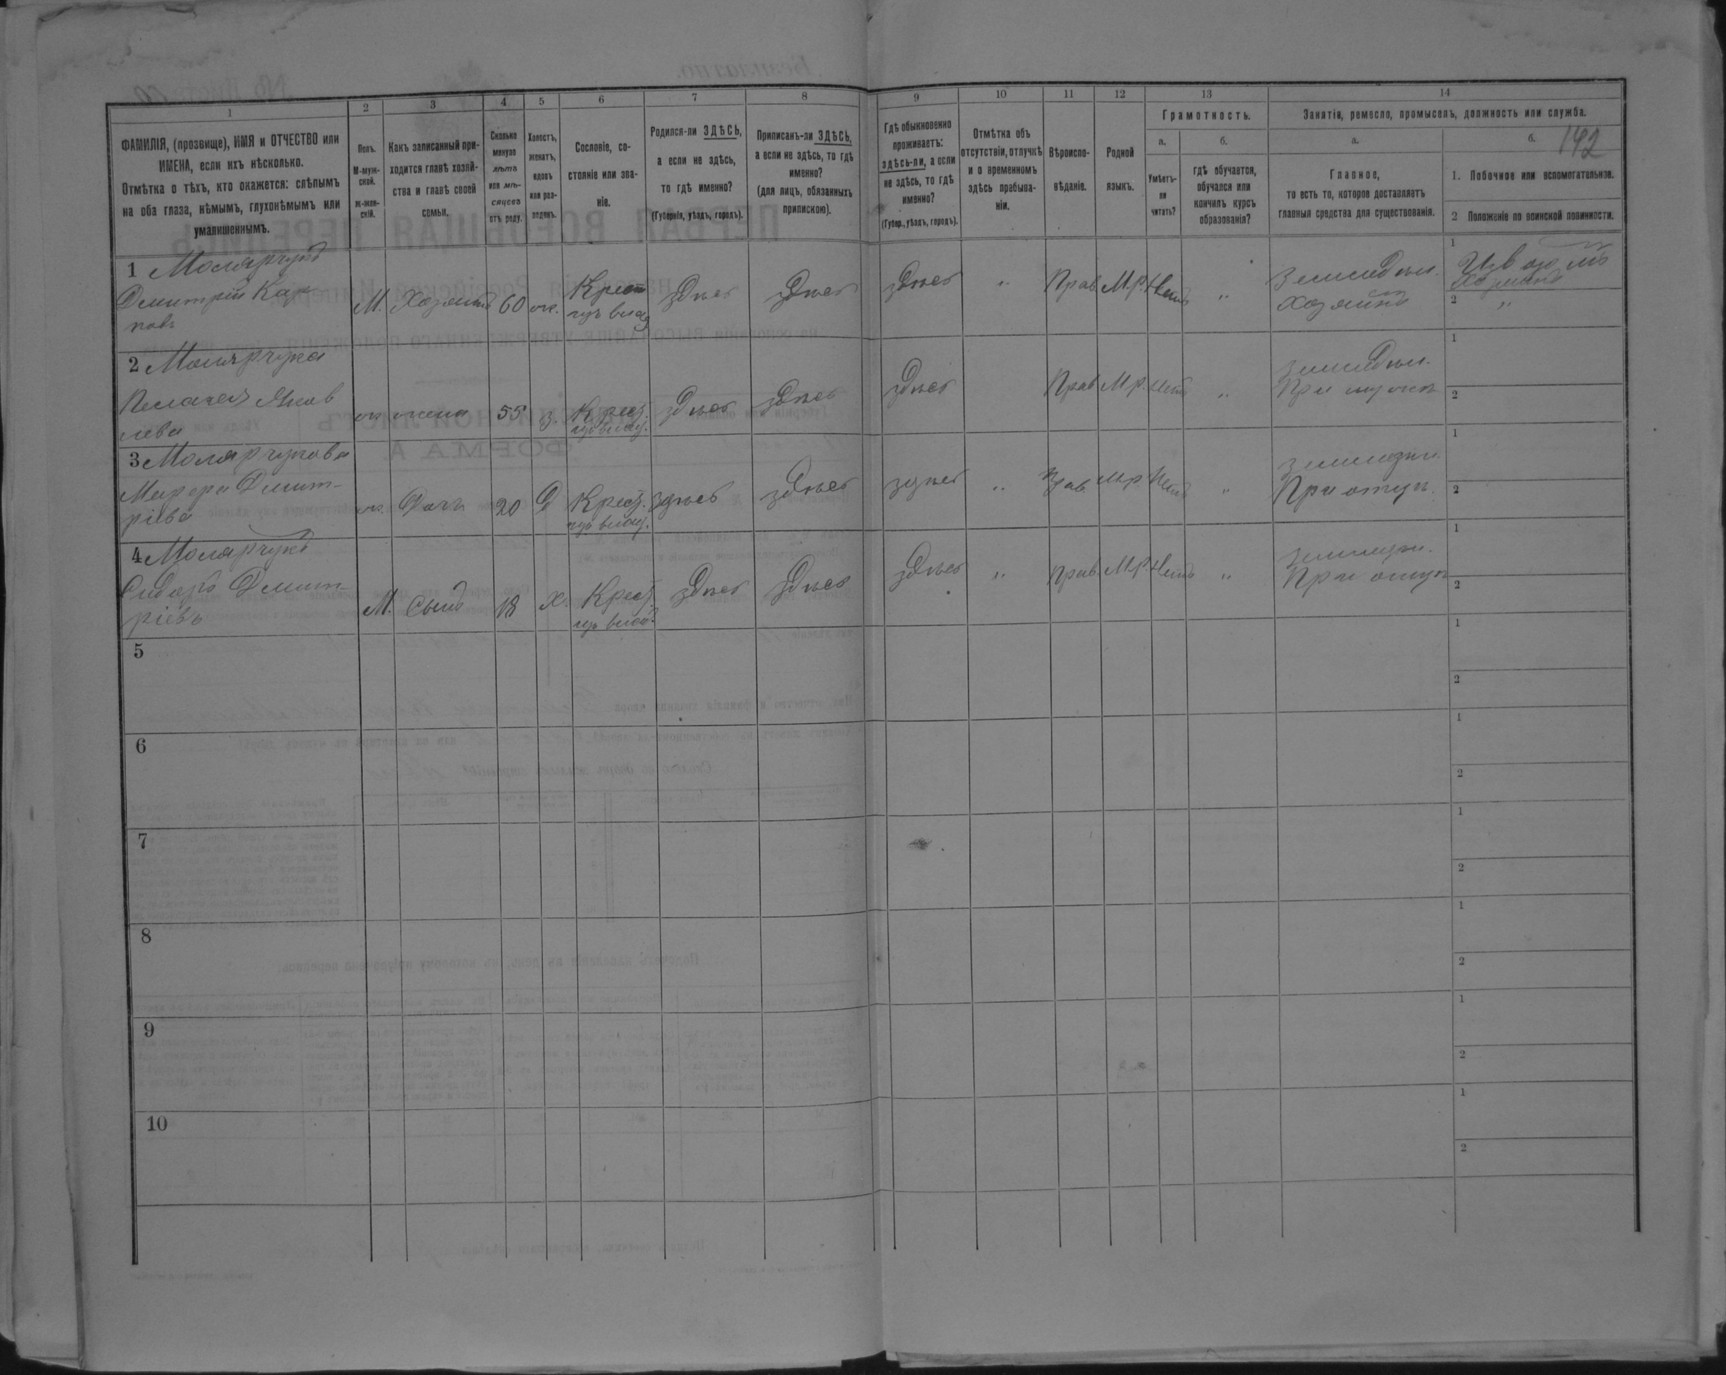 142
1 2 3 4 5 6 7 8 9 10 11 12 13 14
ФАМИЛІЯ, (прозвище), ИМЯ и ОТЧЕСТВО или
ИМЕНА, если ихъ нѣсколько.
Отмѣтка о тѣхъ, кто окажется: слѣпымъ
на оба глаза, нѣмымъ, глухонѣмымъ или
умалишеннымъ.
Полъ.
М-муж-
ской.
Ж-жен-
скій.
Какъ записанный при-
ходится главѣ хозяй-
ства и главѣ своей
семьи.
Сколько
минуло
лѣтъ
или мѣ-
сяцевъ
отъ роду.
Холостъ,
женатъ,
вдовъ
или раз-
веденъ.
Сословіе, со-
стояніе или зва-
ніе.
Родился-ли ЗДѢСЬ,
а если не здѣсь,
то гдѣ именно?
(Губернія, уѣздъ, городъ).
Приписанъ-ли ЗДѢСЬ,
а если не здѣсь, то гдѣ
именно?
(для лицъ, обязанныхъ
припискою).
Гдѣ обыкновенно
проживаетъ:
здѣсь-ли, а если
не здѣсь, то гдѣ
именно?
(Губер., уѣздъ, городъ).
Отмѣтка объ
отсутствіи, отлучкѣ
и о временномъ
здѣсь пребыва-
ніи.
Вѣроиспо-
вѣданіе.
Родной
языкъ.
Грамотность.
а.
Умѣетъ-
ли
читать?
б.
гдѣ обучается,
обучался или
кончилъ курсъ
образованія?
Занятіе, ремесло, промыселъ, должность или служба.
а.
Главное,
то есть то, которое доставляетъ
главныя средства для существованія.
б.
1. Побочное или вспомогательное.
2 Положеніе по воинской повинности.
1 Молярчукъ
Дмитрій Кар
повъ
М. Хозяинъ 60 ж. Крест
изъ влад здѣсь здѣсь здѣсь " Прав. М.р. Нѣтъ " Земледѣл.
хозяинъ
1
хозяинъ
2 "
2 Молярчука
Пелагея Яков
лева
ж жена 55 з. Крест.
изъ влад. здѣсь здѣсь здѣсь Прав. М.р. Нѣтъ " Земледѣл.
При мужѣ
1
2
3 Молярчукова
Дмит-
ріева
ж. Дочь 20 Д Крест.
изъ влад. здѣсь здѣсь здѣсь " Прав М.р. Нѣтъ " Земледѣл.
При отцѣ.
1
2
4 Молярчукъ
Сидоръ Дмит
ріевъ
М. Сынъ 18 х. Крест
изъ влад. здѣсь здѣсь здѣсь " Прав. М.р. Нѣтъ " Земледѣл.
При отцѣ
1
2
5
1
2
6
1
2
7
1
2
8
1
2
9
1
2
10
1
2